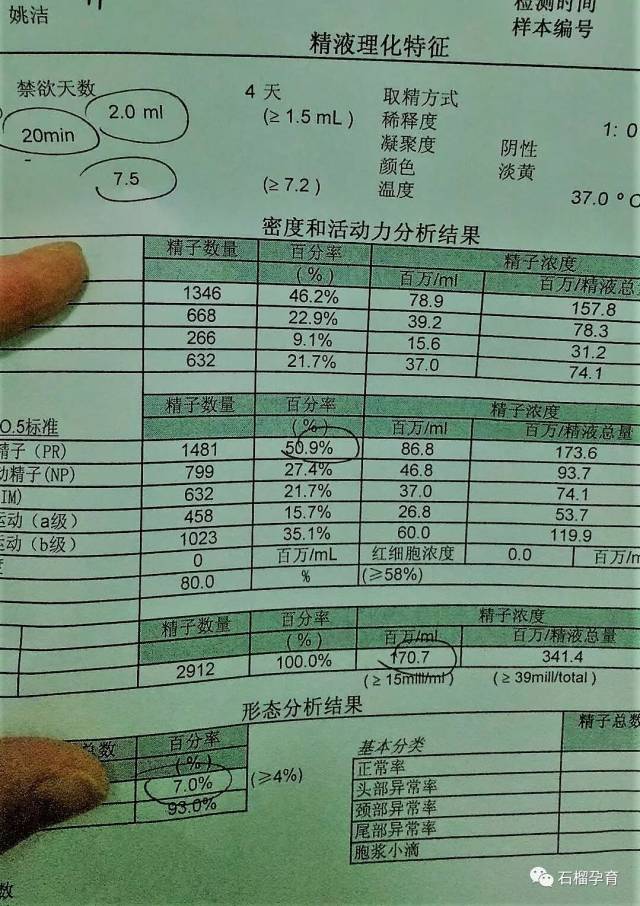 姚洁
检测时间
样本编号
精液理化特征
禁欲天数 4 天 取精方式
2.0 ml (≥ 1.5 mL ) 稀释度 1: 0
20min 凝聚度 阴性
颜色 淡黄
7.5 (≥ 7.2 ) 温度 37.0 ° C
密度和活动力分析结果
精子数量 百分率 精子浓度
( % ) 百万/ml 百万/精液总量
1346 46.2% 78.9 157.8
668 22.9% 39.2 78.3
266 9.1% 15.6 31.2
632 21.7% 37.0 74.1
精子数量 百分率 精子浓度
O.5标准 ( % ) 百万/ml 百万/精液总量
精子（PR) 1481 50.9% 86.8 173.6
动精子(NP) 799 27.4% 46.8 93.7
IM) 632 21.7% 37.0 74.1
运动（a级） 458 15.7% 26.8 53.7
运动（b级） 1023 35.1% 60.0 119.9
度 0 百万/mL 红细胞浓度 0.0 百万/m
80.0 % (≥58%)
精子数量 百分率 精子浓度
( % ) 百万/ml 百万/精液总量
2912 100.0% 170.7 341.4
(≥ 15mill/ml ) (≥ 39mill/total )
形态分析结果
总数 百分率 精子总数
( % ) 基本分类
7.0% (≥4%) 正常率
93.0% 头部异常率
颈部异常率
尾部异常率
胞浆小滴
石榴孕育
数